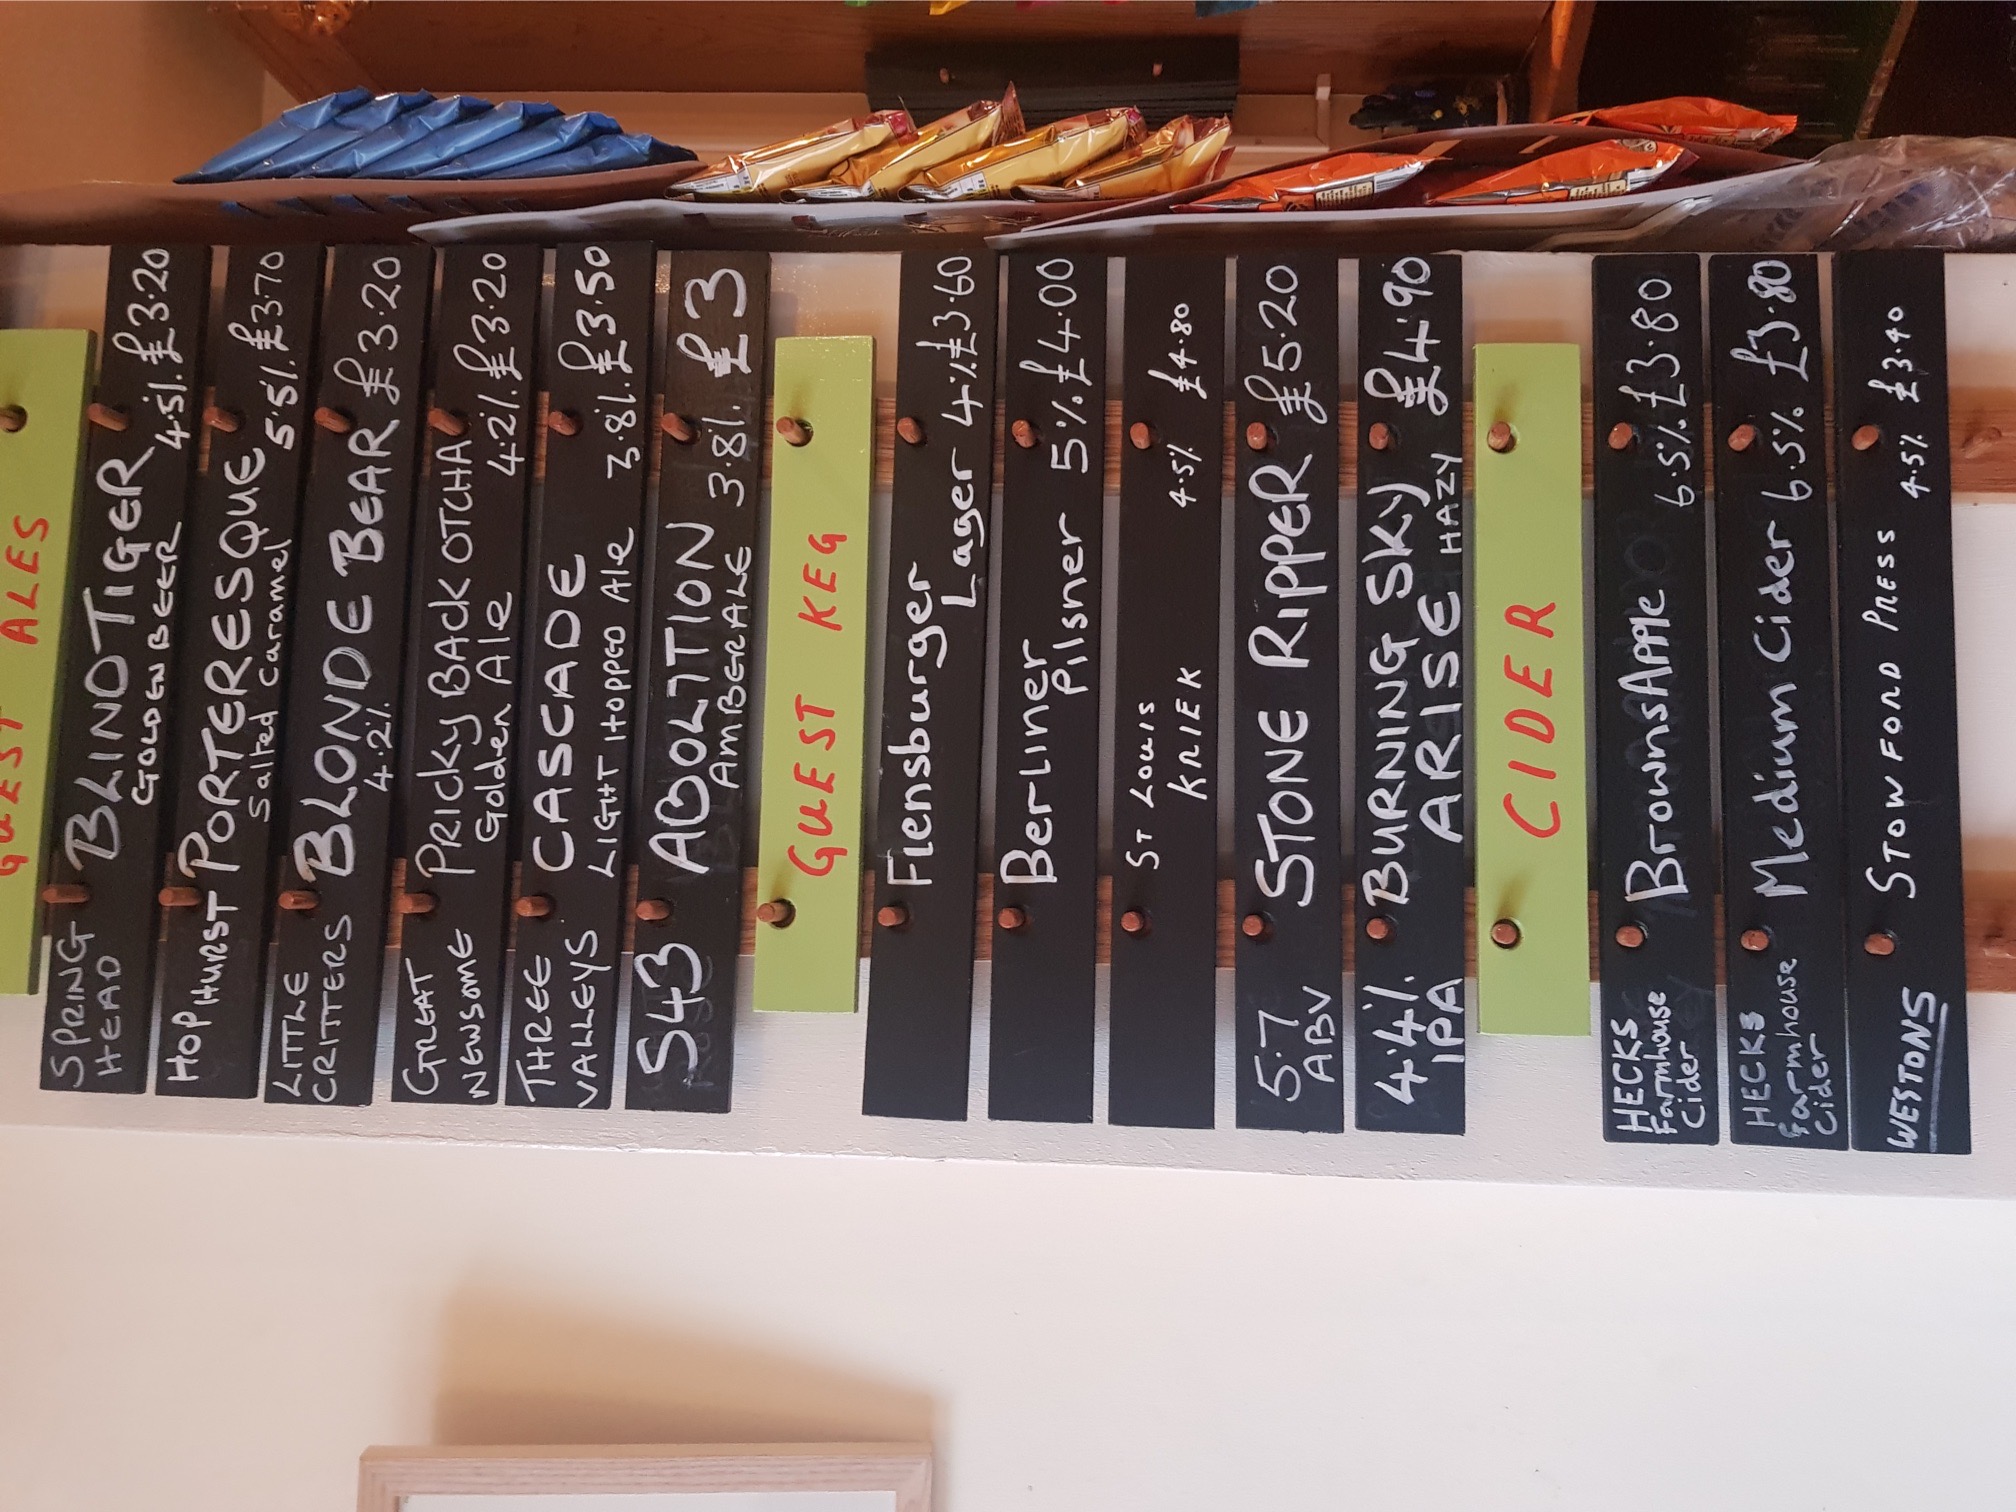 GUEST ALES
SPRING HEAD BLINDTIGER £3.20
GOLDEN BEER 4.5%
HOPHURST PORTERESQUE £3.70
Salted Caramel 5.5%
LITTLE CRITTERS BLONDE BEAR £3.20
4.2%
GREAT NEWSOME PRICKY BACK OTCHAN £3.20
Golden Ale 4.2%
THREE VALLEYS CASCADE £3.50
LIGHT HOPPED Ale 3.8%
S43 ABOLITION £3
AMBERALE 3.8%
GUEST KEG
Flensburger
Lager 4% £3.60
Berliner
Pilsner 5% £4.00
ST LOUIS
KRIEK 4.5% £4.80
5.7 ABV STONE RIPPER £5.20
4.4% IPA BURNING SKY £4.90
ARISE HAZY
CIDER
HECKS Farmhouse Cider BrownsApple 6.5% £3.80
HECKS Farmhouse Cider Medium Cider 6.5% £3.80
WESTONS STOWFORD PRESS 4.5% £3.40